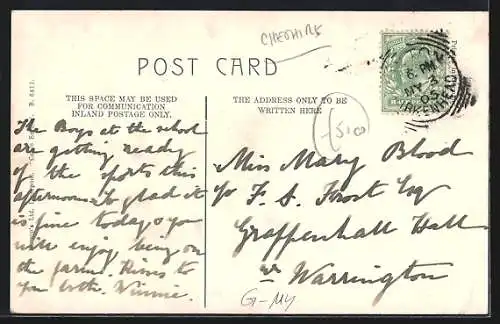 CHESHIRE
POST CARD
THIS SPACE MAY BE USED
FOR COMMUNICATION
INLAND POSTAGE ONLY.
THE ADDRESS ONLY TO BE
WRITTEN HERE
The Boys at the school
are getting ready
for the sports this
afternoon. So glad it
is fine today & you
will enjoy being on
the farm. Kisses to
you both. Winnie.
Miss Mary Blood
c/o F. S. Frost Esq
Grappenhall Hall
nr Warrington
G-MY
8 PM
MY 3